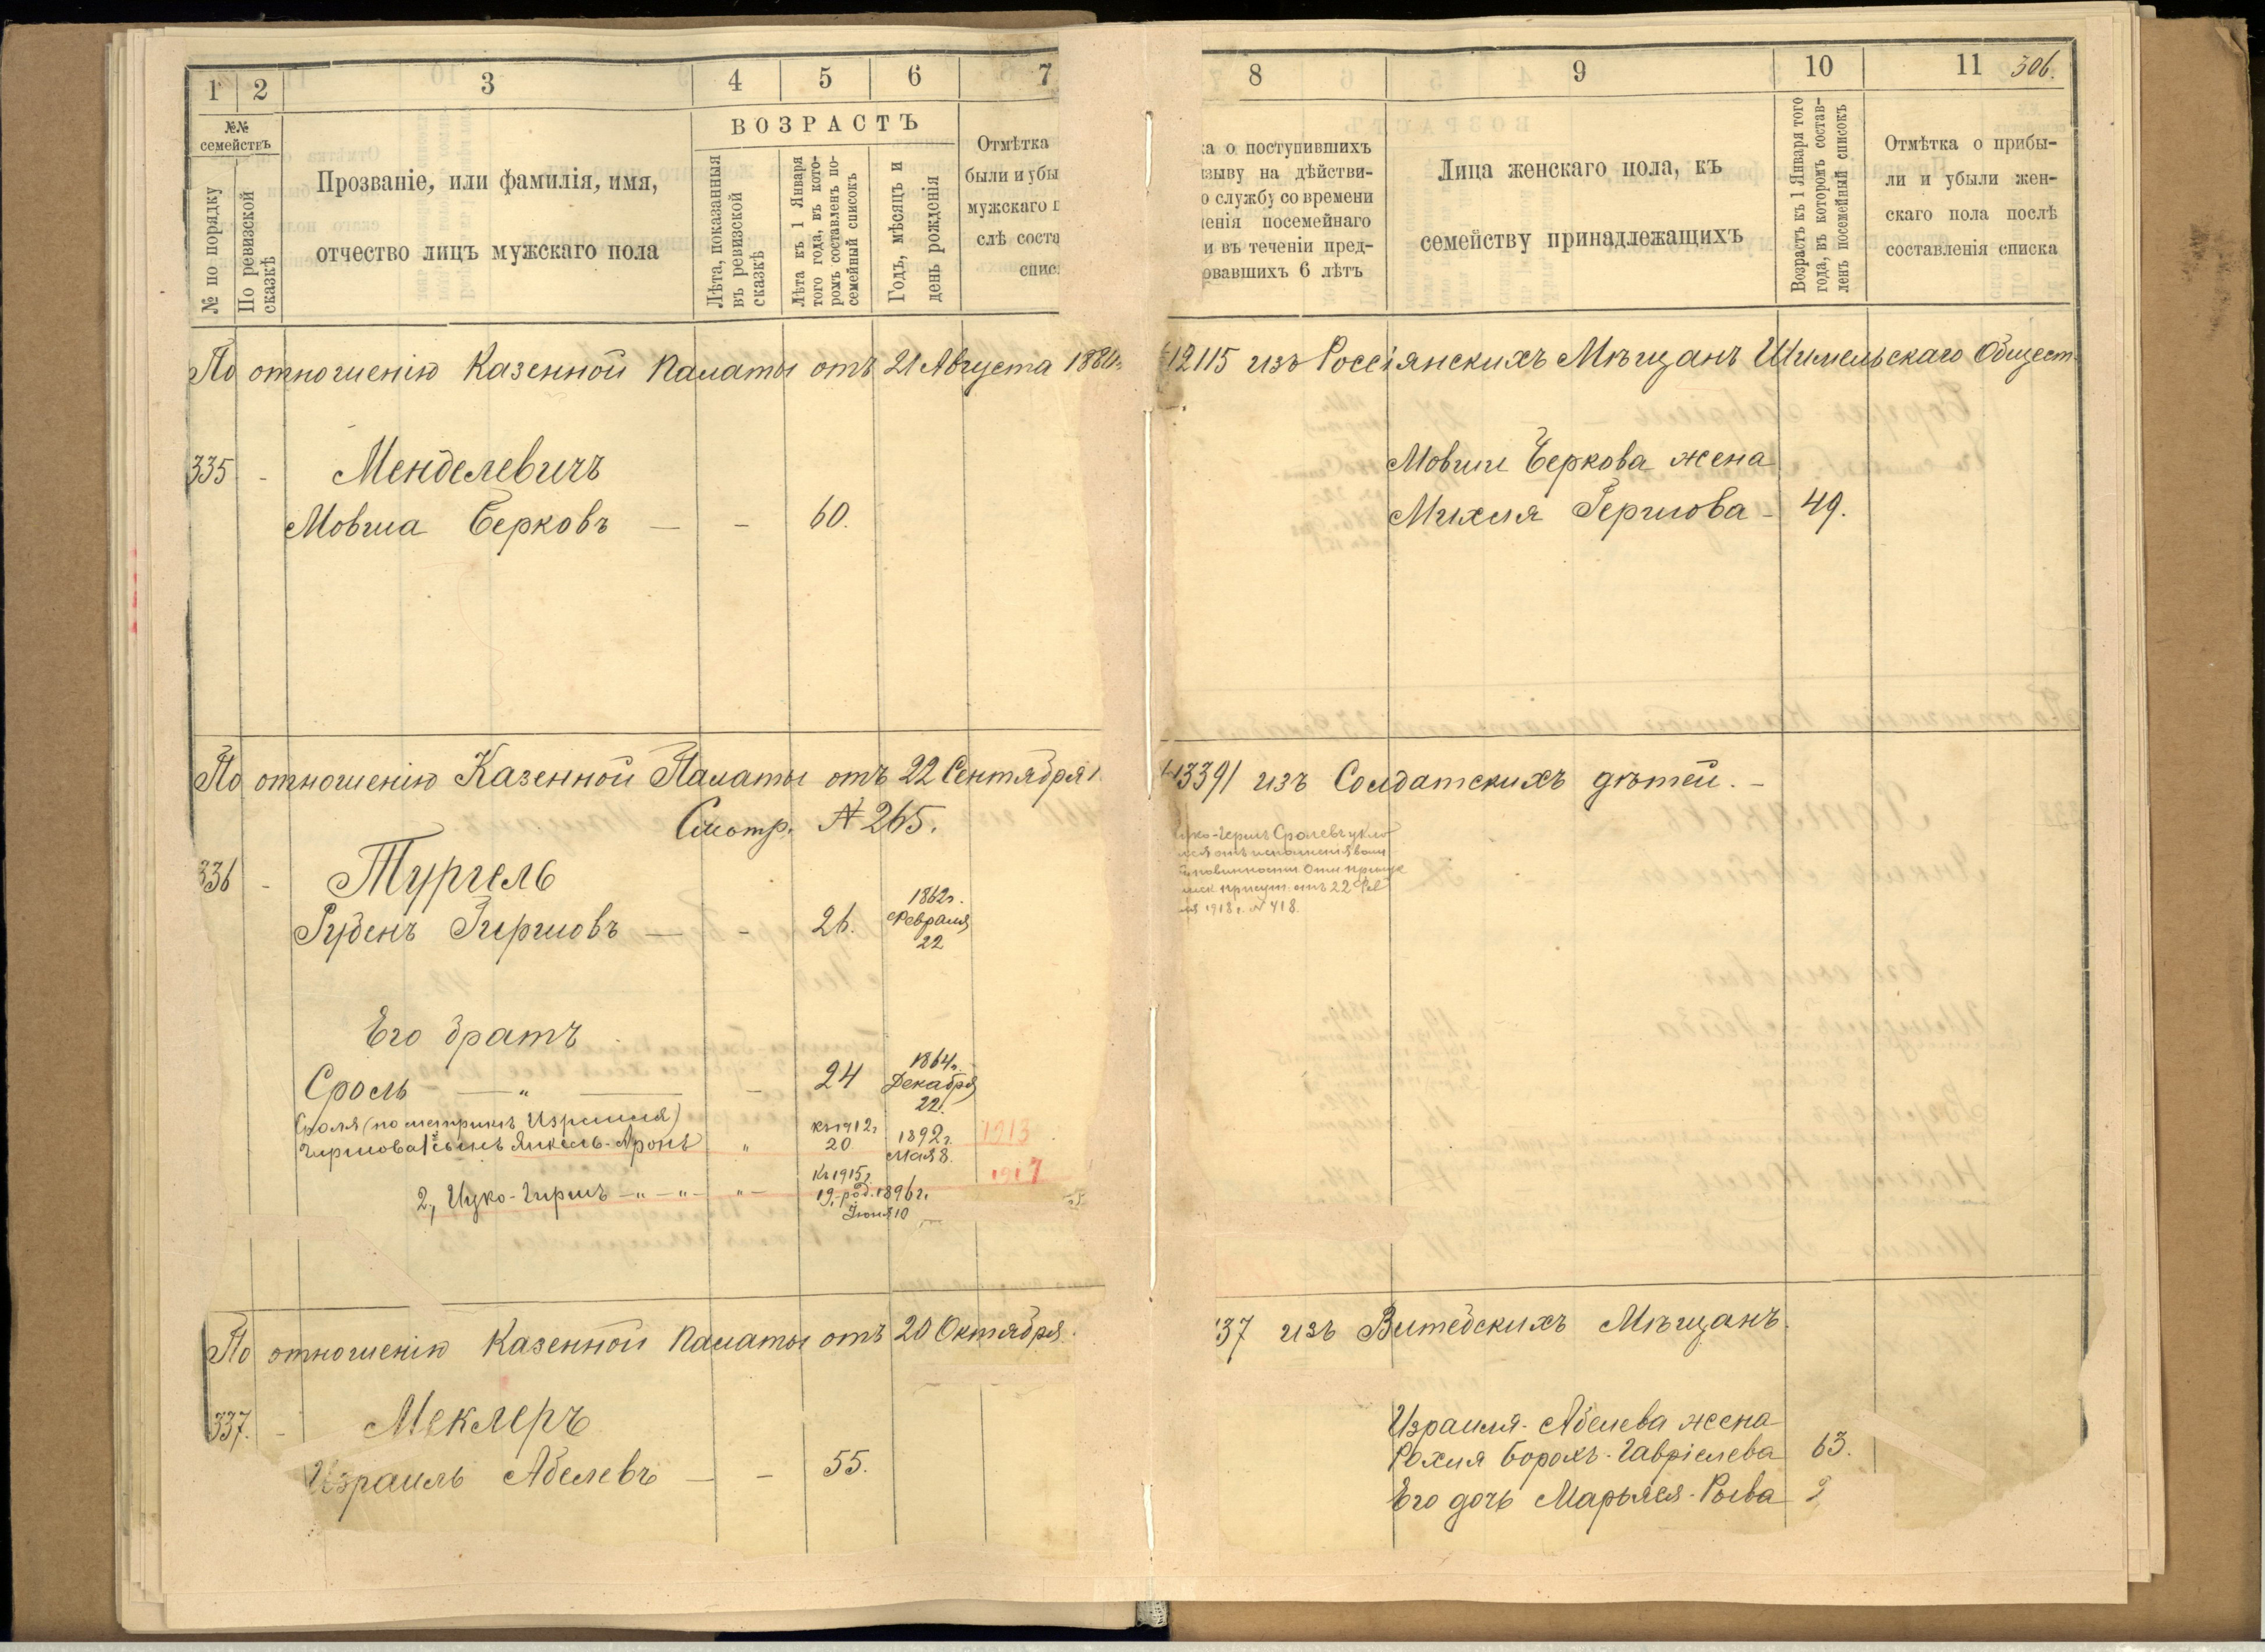 1 2 3 4 5 6 7
№№ семействъ
№ по порядку
По ревизской сказкѣ
Прозваніе, или фамилія, имя,
отчество лицъ мужскаго пола
ВОЗРАСТЪ
Лѣта, показанныя
въ ревизской
сказкѣ
Лѣта къ 1 Января
того года, въ кото-
ромъ составленъ по-
семейный списокъ
Годъ, мѣсяцъ и
день рожденія
Отмѣтка
были и убы
мужскаго п
слѣ соста
спис
По отношенію Казенной Палаты отъ 21 Августа
335 - Менделевичъ
Мовша Берковъ — - 60.
По отношенію Казенной Палаты отъ 22 Сентября
Смотр. № 265.
336 - Тургель
Рубенъ Гиршовъ — - 26. 1862г.
Февраля
22
Его братъ
Сроль — „ — - 24 1864г.
Декабря
22.
Сроля (по метрикѣ Израиля)
Гиршова 1й сынъ Янкель-Аронъ „ къ 1912г
20 1892г.
Мая 8. 1913
2, Ицко-Гиршъ -„-„- „- Къ 1915г.
19. род. 1896г.
Іюня 10 1917
По отношенію Казенной Палаты отъ 20 Октября
337. - Меклеръ
Израиль Абелевъ — - 55.
8 9 10 11 306.
ка о поступившихъ
зыву на дѣйстви-
о службу со времени
ленія посемейнаго
и въ теченіи пред-
овавшихъ 6 лѣтъ
Лица женскаго пола, къ
семейству принадлежащихъ
Возрастъ къ 1 Января того
года, въ которомъ состав-
ленъ посемейный списокъ
Отмѣтка о прибы-
ли и убыли жен-
скаго пола послѣ
составленія списка
12115 изъ Россіянскихъ Мѣщанъ Шимельскаго Общест.
Мовши Беркова жена
Михля Гершова - 49.
13391 изъ Солдатскихъ дѣтей. -
цко-Гершъ Сролевъ укло
лся отъ исполненія воин
повинности
присут. отъ 22
1918 г. № 418.
37 изъ Витебскихъ Мѣщанъ.
Израиля Абелева жена
Рохля Борохъ-Гавріелева 63.
Его дочь Марьяся-Рыва